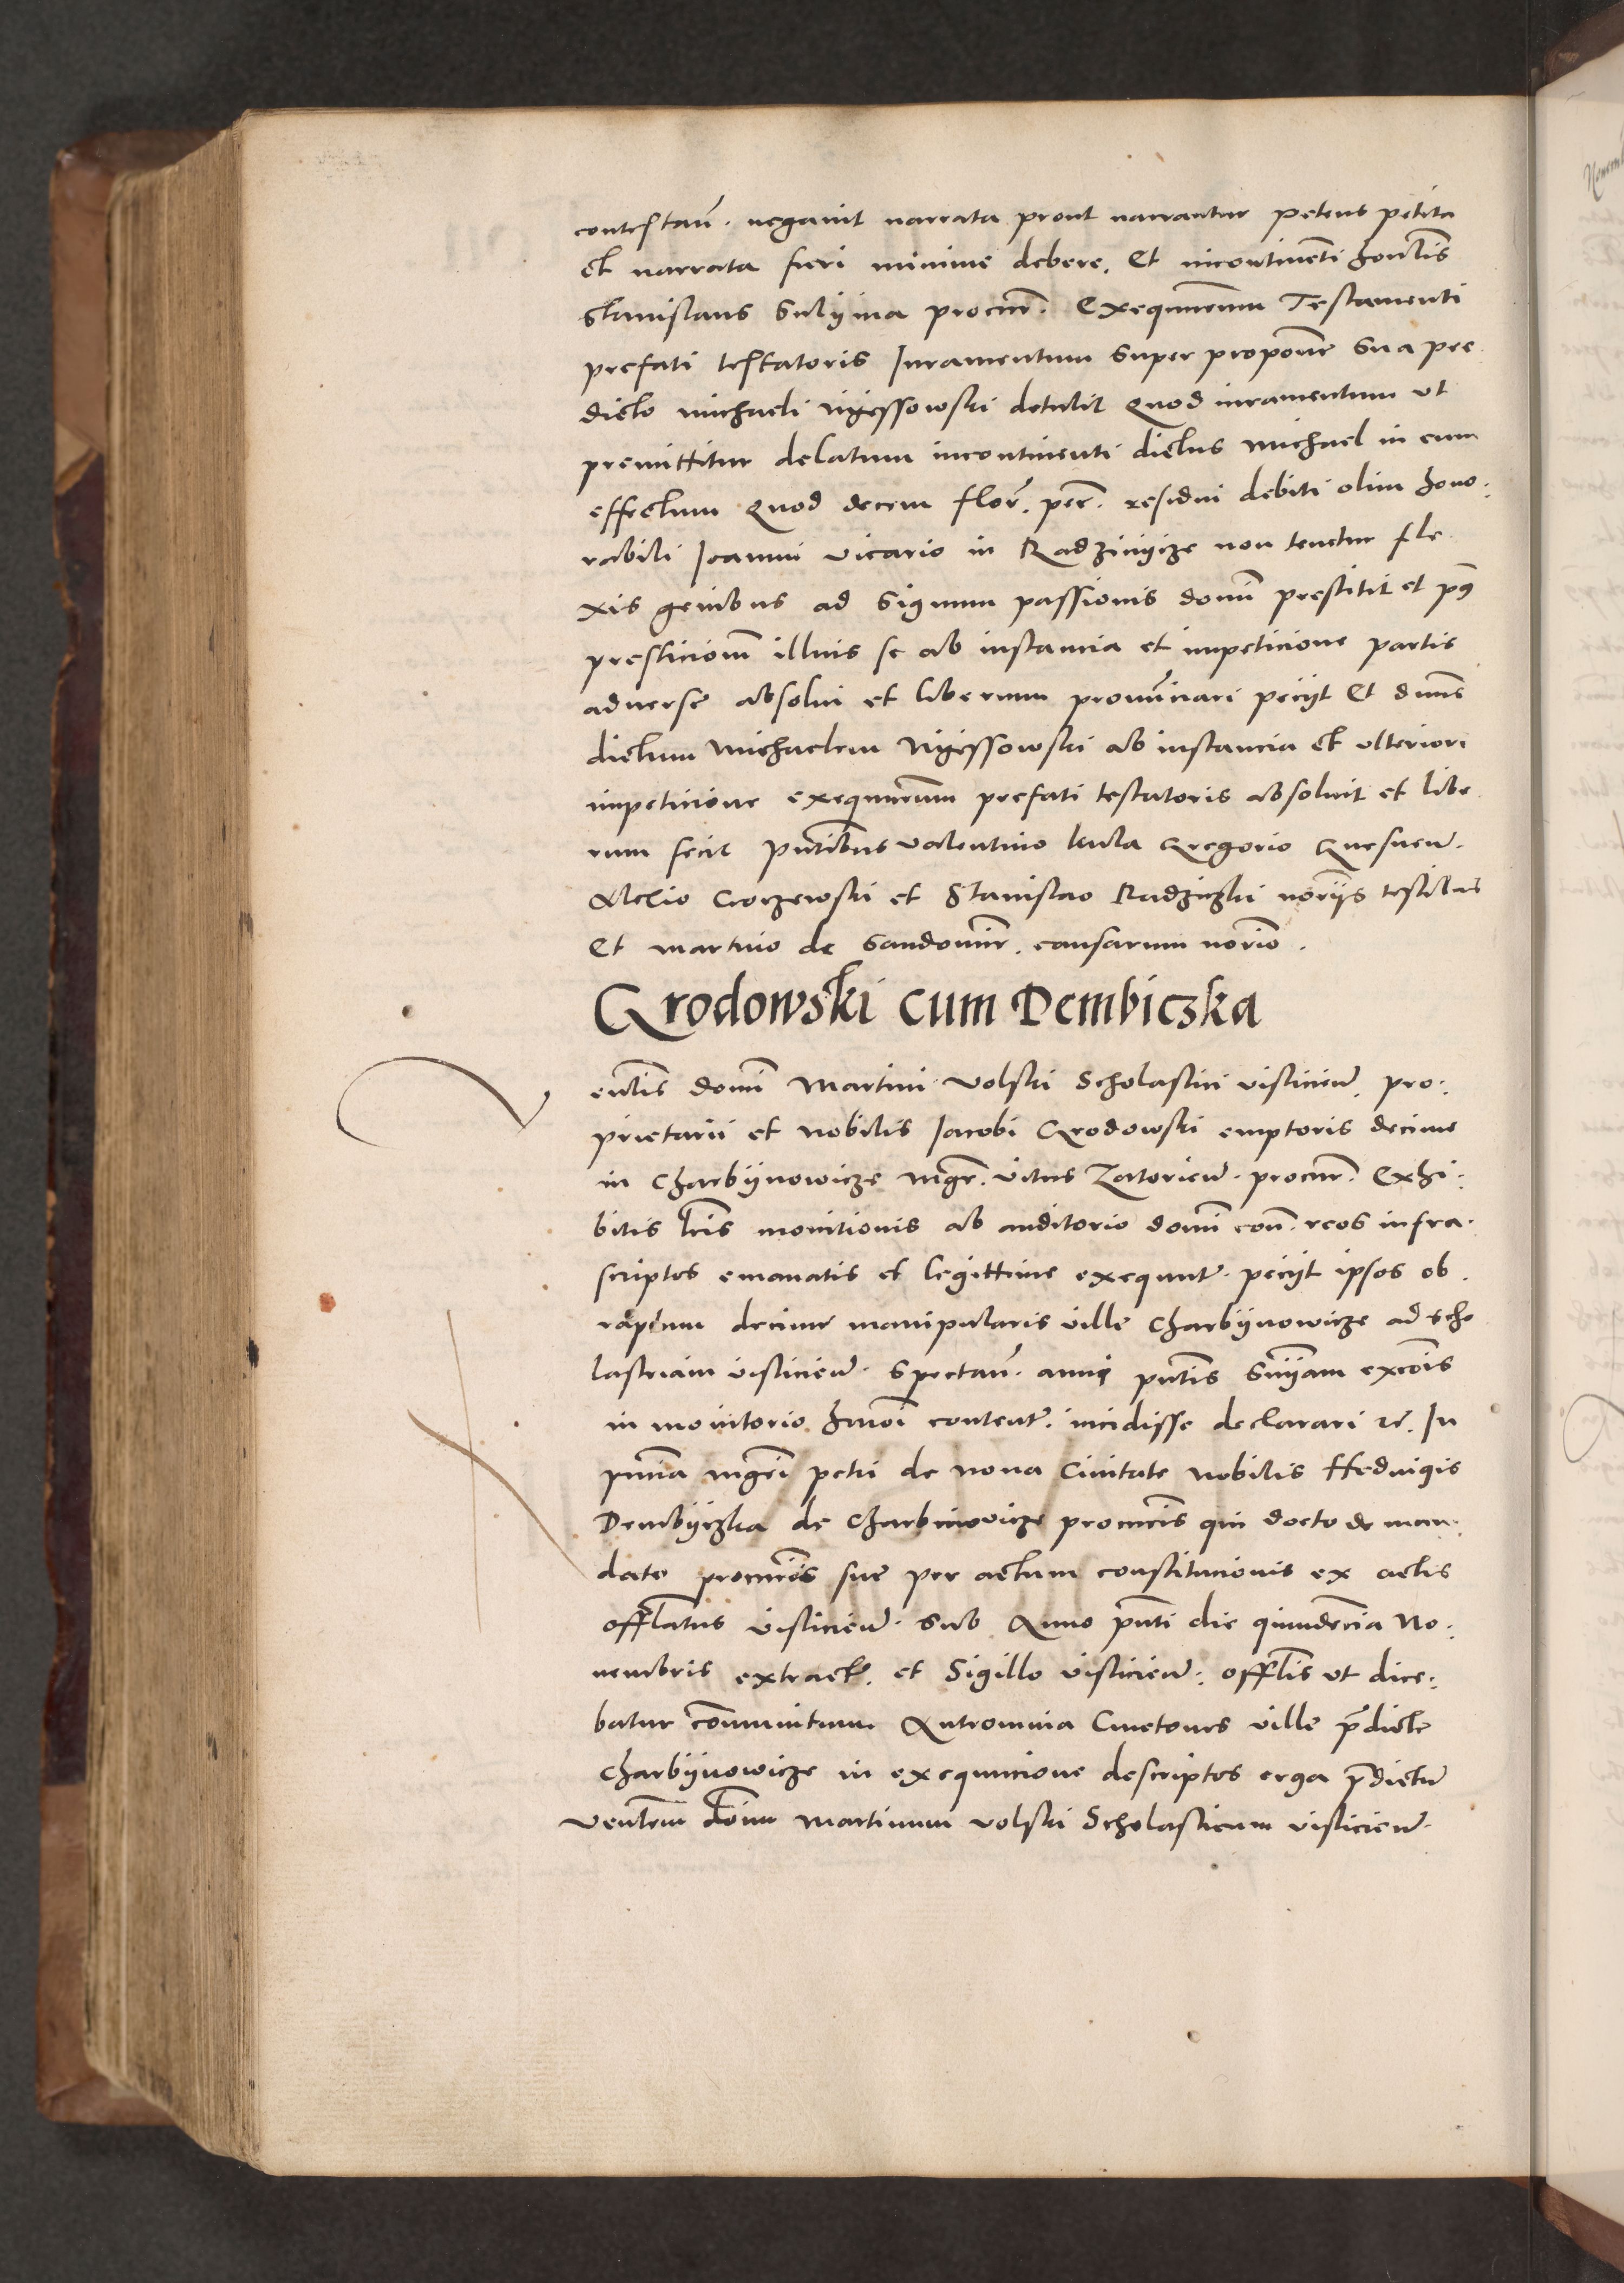 contestan̄. negauit narrata prout narrantur petens petita
et narrata fieri minime debere. Et incontinēti honēlis
Stanislaus Sulijma procur̄. Exequutorum Testamenti
prefati testatoris Juramentum super propōne sua pre
dicto michaeli detulit Quod iuramentum ut
premittitur delatum incontinenti dictus Michael in eum
effectum Quod decem flor̄. pec̄. residui debiti olim hono.
rabili Joanni vicario in Radzimijcze non tenetur fle
xis genibus ad Signum passionis domī prestitit et p9
prestitionē illius se ab instancia et impeticione partis
aduerse absolui et liberum pronūciari peciit Et dnus
dictum Michaelem ab instancia et vlteriori
impeticione exequutorum prefati testatoris absoluit et libe
rum fecit pntibus valentino kula Gregorio Gnesnen̄.
Alexio et Stanislao Radziczki norijs testibus
Et martino de Sandomir̄. causarum norio.
Grodowski cum Dembiczka
enlis domī Martini Volski Scholastici visliciēn. pro.
prietarii et nobilis Jacobi Grodowski emptoris decime
in Charbijnowicze mgr̄. vitus Zatorien̄. procur̄. Exhi.
bitis lris monitionis ab auditorio domī con̄. reos infra.
scriptos emanatis et legittime exequut̄. peciit ipsos ob.
raptum decime manipularis ville Charbijnowicze ad scho
lastriam vislicien̄. Spectan̄. anni pntis Snijam excōis
in monitorio hmōi content̄. incidisse declarari rē. In
pntia mgrī petri de noua Ciuitate nobilis Heduigis
Dembijczka de Charbinowicze procuris qui docto de man.
dato procuris sue per actum constitucionis ex actis
offlatus vislicien̄. Sub Anno pnti die quindecia No.
uembris extract̄. et Sigillo vislicien̄. offlis vt dice.
batur cōmunitum Antromnia Cmetones ville p̄dicte
Charbijnowicze in exequucione descriptos erga p̄dictū
Venlem dōm Martinum volski Scholasticum vislicien̄.